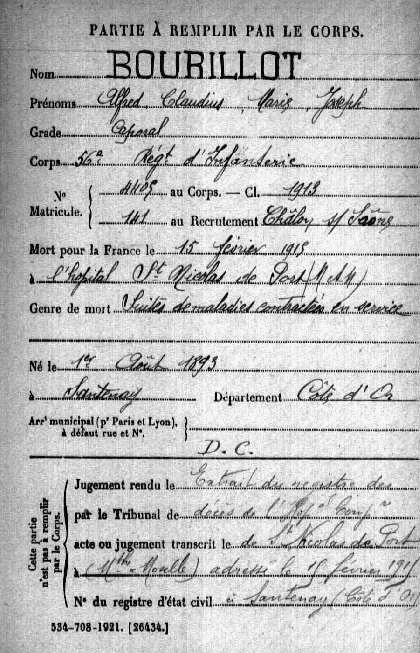 PARTIE À REMPLIR PAR LE CORPS.
Nom BOURILLOT
Prénoms Alfred Claudius Marie Joseph
Grade Caporal
Corps 56e Régt d'Infanterie
No Matricule. 4405 au Corps. — Cl. 1913
141 au Recrutement Châlon s/ Saône
Mort pour la France le 15 février 1915
à l'hôpital St Nicolas de Port (M & M)
Genre de mort Suites de maladies contractées en service
Né le 1er Août 1893
à Santenay Département Côte d'Or
Arrt municipal (pr Paris et Lyon), à défaut rue et No.
D. C.
Cette partie n'est pas à remplir par le Corps.
Jugement rendu le Extrait du registre des
par le Tribunal de décès de l'Hôpal Temp
acte ou jugement transcrit le de St Nicolas de Port
à (Mthe Moselle) adressé le 15 février 1915
No du registre d'état civil à Santenay (Côte d'Or)
534-708-1921. [26434.]